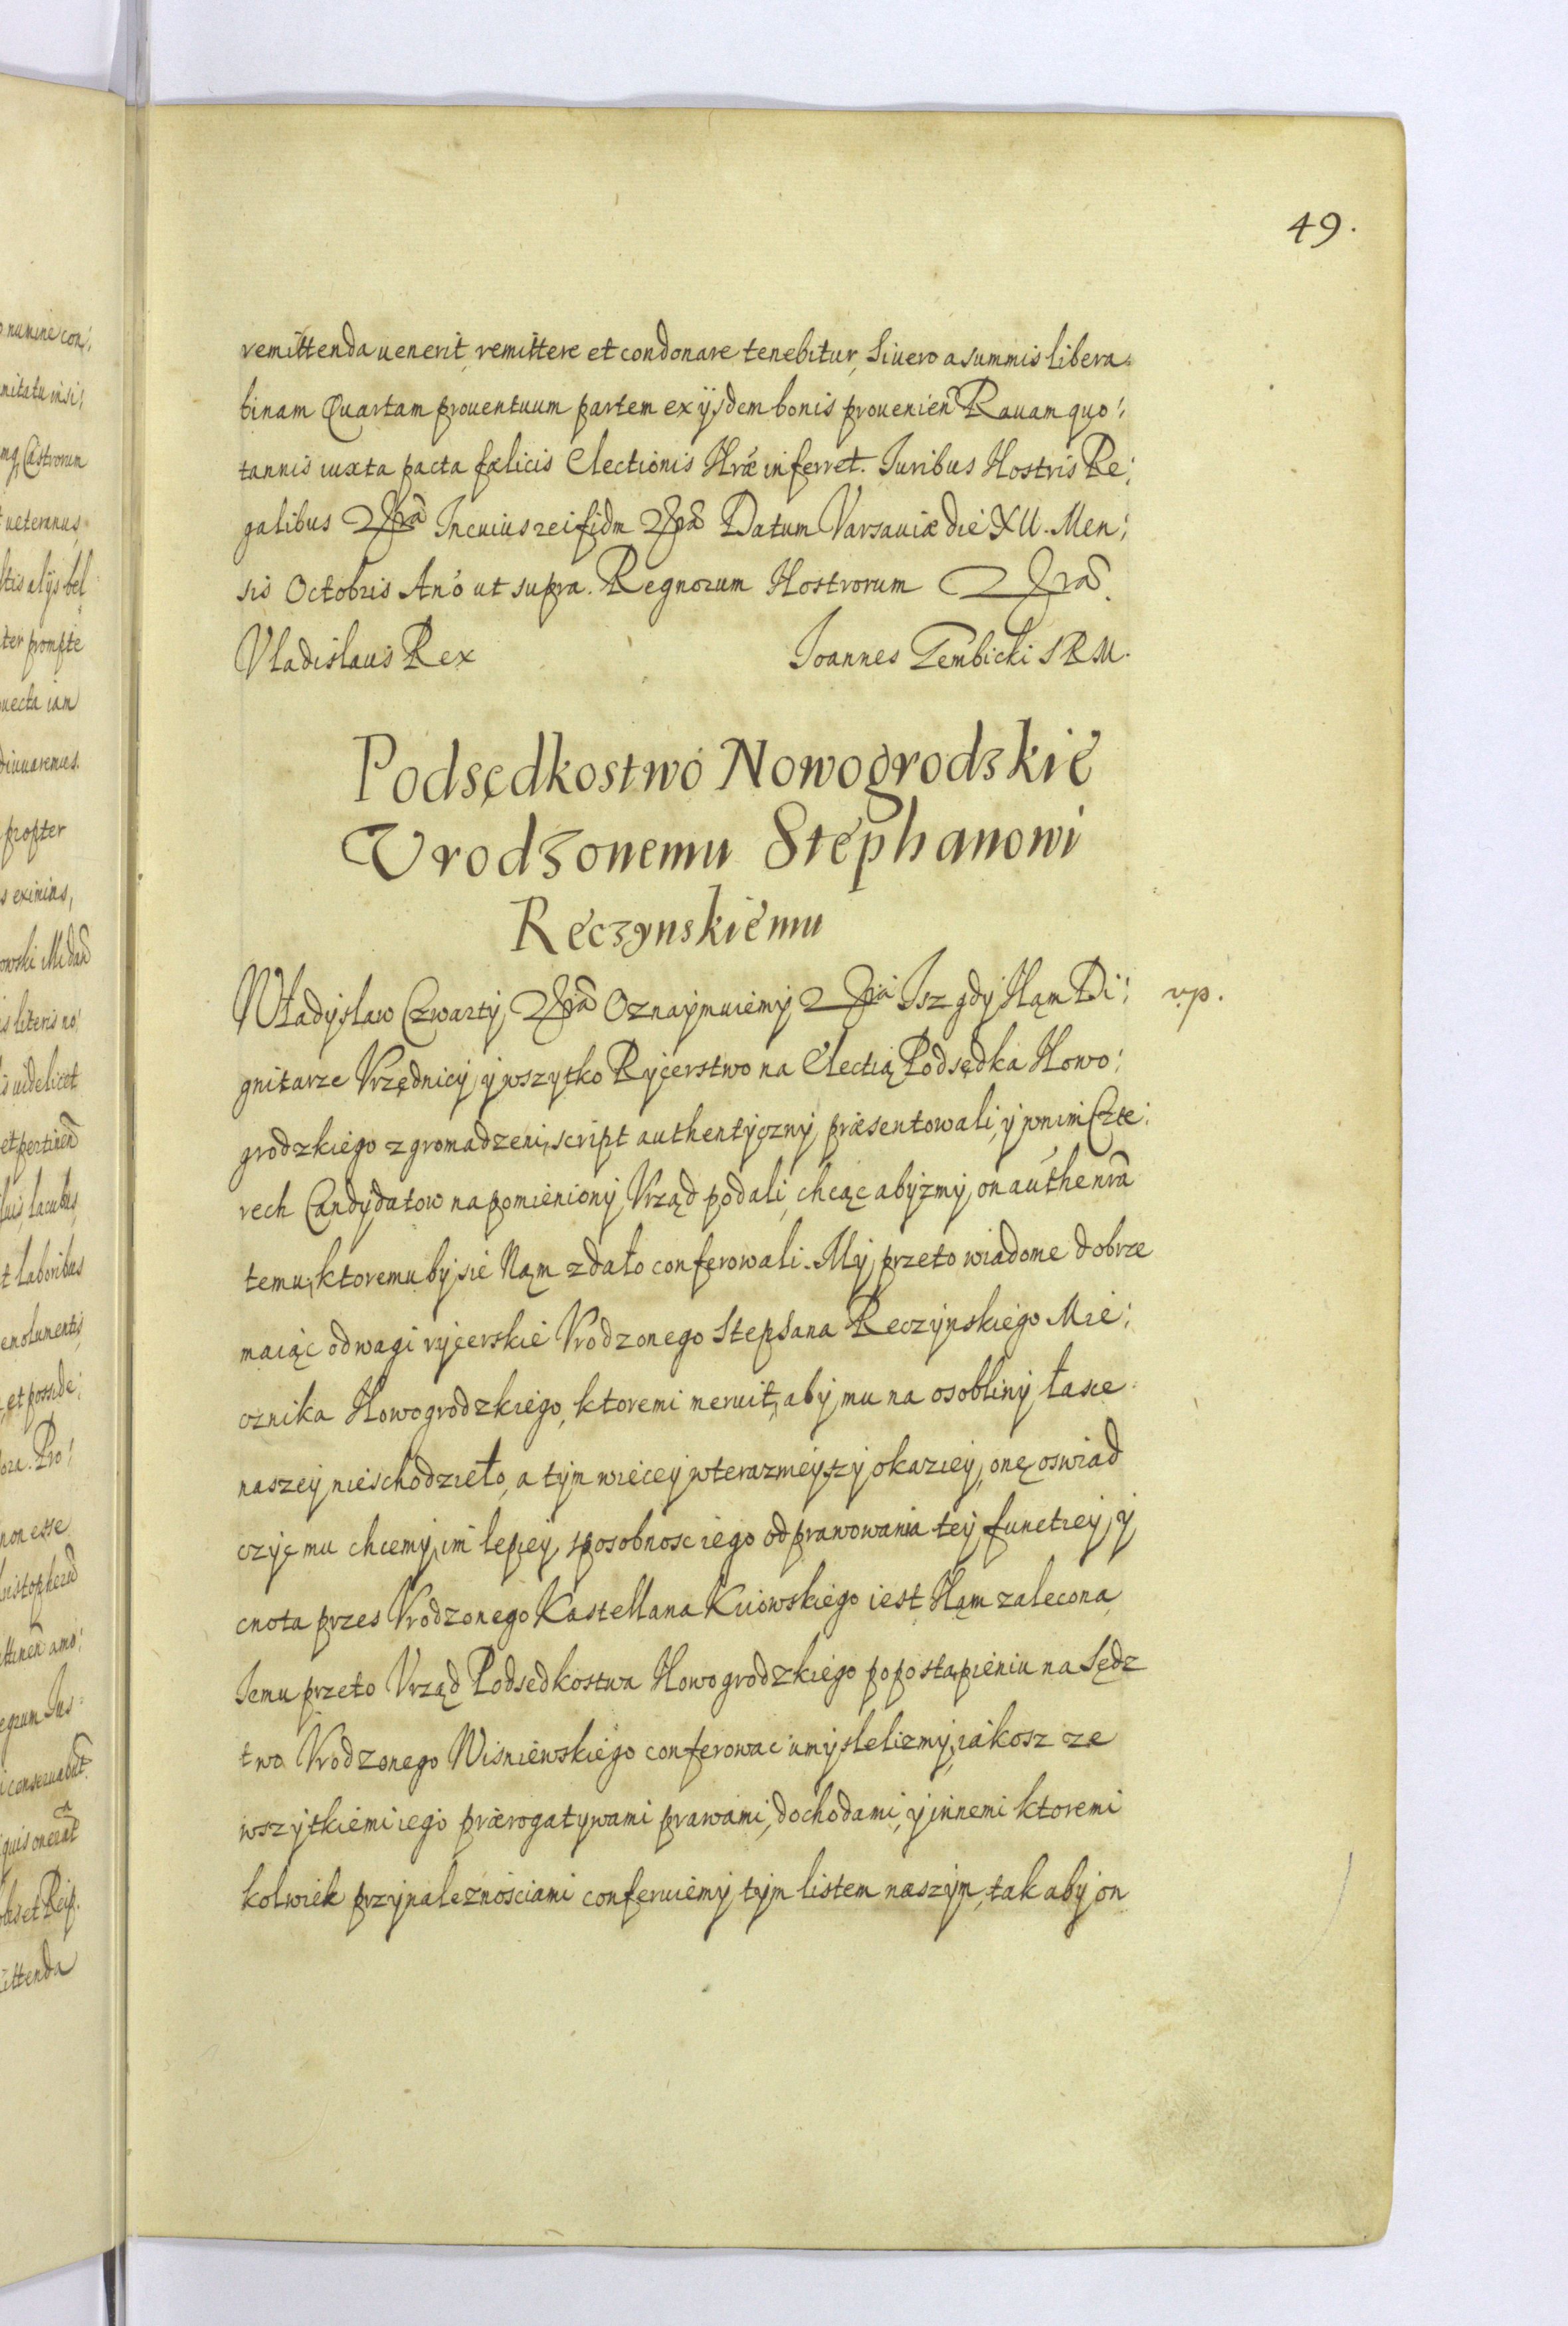 49.
remittenda uenerit, remittere et condonare tenebitur, Si uero a summis libera:
binam Quartam prouentuum partem ex ijsdem bonis prouenien Rauam quo:
tannis iuxta pacta fælicis Electionis Nrae inferret. Iuribus Nostris Re:
galibus In cuius rei fidm Datum Varsauiæ die XII. Men:
sis Octobris Ano ut supra. Regnorum Nostrorum
Vladislaus Rex Ioannes Gembicki S R M.
Podsędkostwo Nowogrodzkie
Vrodzonemu Stephanowi
Reczynskiemu
Władysław Czwarty Oznaymuiemy Isz gdy Nąm Di: vp.
gnitarze Vrzędnicy, y wszytko Rycerstwo na Electią Podsędka Nowo:
grodzkiego zgromadzeni, script authentyczny præsentowali, y wnim Czte:
rech Candydatow na pomieniony Vrząd podali, chcąc abyzmy on
temu, ktoremu by sie Nąm zdało conferowali. My przeto wiadome dobrze
maiąc odwagi rycerskie Vrodzonego Stephana Reczynskiego Mie:
cznika Nowogrodzkiego, ktoremi meruit, aby mu na osobliny łasce
naszey nieschodzieło, a tym wiecey wterazmeyszy okaziey, onę oswiad
czyc mu chcemy, im lepiey sposobnosc iego odprawowania tey functiey, y
cnota przes Vrodzonego Kastellana Kiiowskiego iest Nąm zalecona
Iemu przeto Vrząd Podsedkostwa Nowogrodzkiego po postąpieniu na Sędz
two Vrodzonego Wisniewskiego conferowac umyslelizmy, iakosz ze
wszytkiemi iego prærogatywami prawami, dochodami, y innemi ktoremi
kolwiek przynaleznosciami conferuiemy tym listem naszym, tak aby on